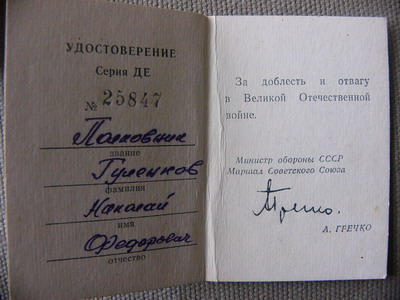 УДОСТОВЕРЕНИЕ
Серия ДЕ
№ 25847
Полковник
звание
фамилия
Николай
имя
Федорович
отчество
За доблесть и отвагу
в Великой Отечественной
войне.
Министр обороны СССР
Маршал Советского Союза
Гречко.
А. ГРЕЧКО